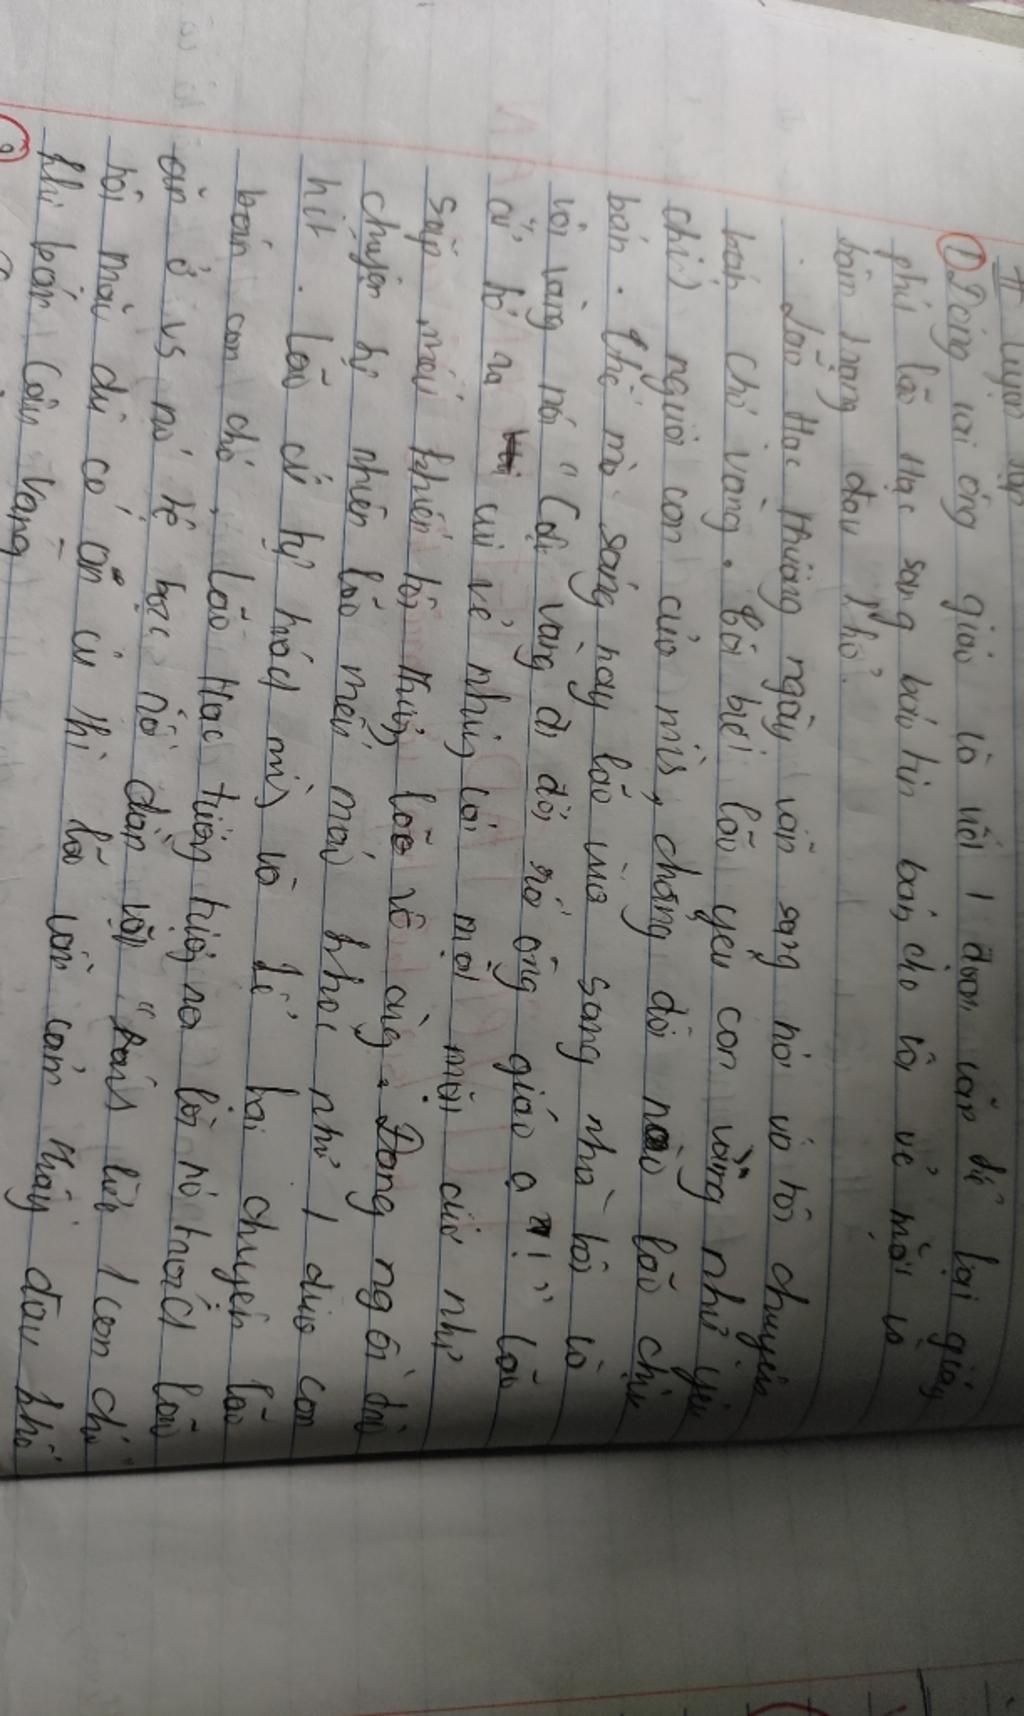 II Luyện tập
① Đóng vai ông giáo là viết 1 đoạn văn để lại giây
phút lão Hạc sang báo tin bán chó tôi vẻ mặt và
tâm trạng đau khổ.
. Lão Hạc thường ngày vẫn sang nói với tôi chuyện
bán chó vàng. Tôi biết lão yêu con vàng như yêu
chính người con của mình, chẳng đời nào lão chịu
bán. Thế mà sáng nay lão vừa sang nhà tôi là
vội vàng nói "Cậu vàng đi đời rồi ông giáo ạ!" Lão
cố tỏ ra vui vẻ nhưng cái mặt cười như
sắp mếu khiến tôi thấy lão rõ ràng. Đang ngồi
chuyện tự nhiên lão mếu máo khóc như 1 đứa con
nít. Lão cứ tự trách mình và kể hai chuyện lão
bán con chó, lão Hạc tưởng tượng ra lời nó trách lão
ăn ở vs nó tệ bạc nó dám lừa "Đánh lừa 1 con chó"
tôi mới có an ủi thì lão vẫn cảm thấy đau khổ
khi bán Cậu Vàng
②